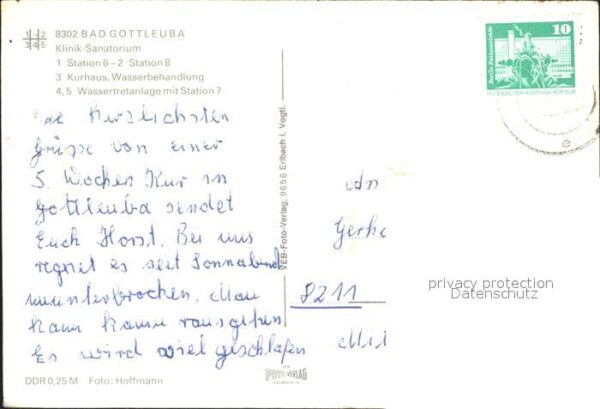 1 2 8302 BAD GOTTLEUBA
3 4 5 Klinik-Sanatorium
1 Station 6 – 2 Station 8
3 Kurhaus, Wasserbehandlung
4, 5 Wassertretanlage mit Station 7
Die herzlichsten
Grüsse von einer
5. Wochen Kur in
Gottleuba sendet
Euch Horst. Bei uns
regnet es seit Sonnabend
ununterbrochen. Man
kann kaum rausgehen
Es wird viel geschlafen
DDR 0,25 M Foto: Hoffmann
VEB-Foto-Verlag, 9658 Erlbach i. Vogtl.
VERLAG
10
An
Gerhe
8211
privacy protection
Datenschutz